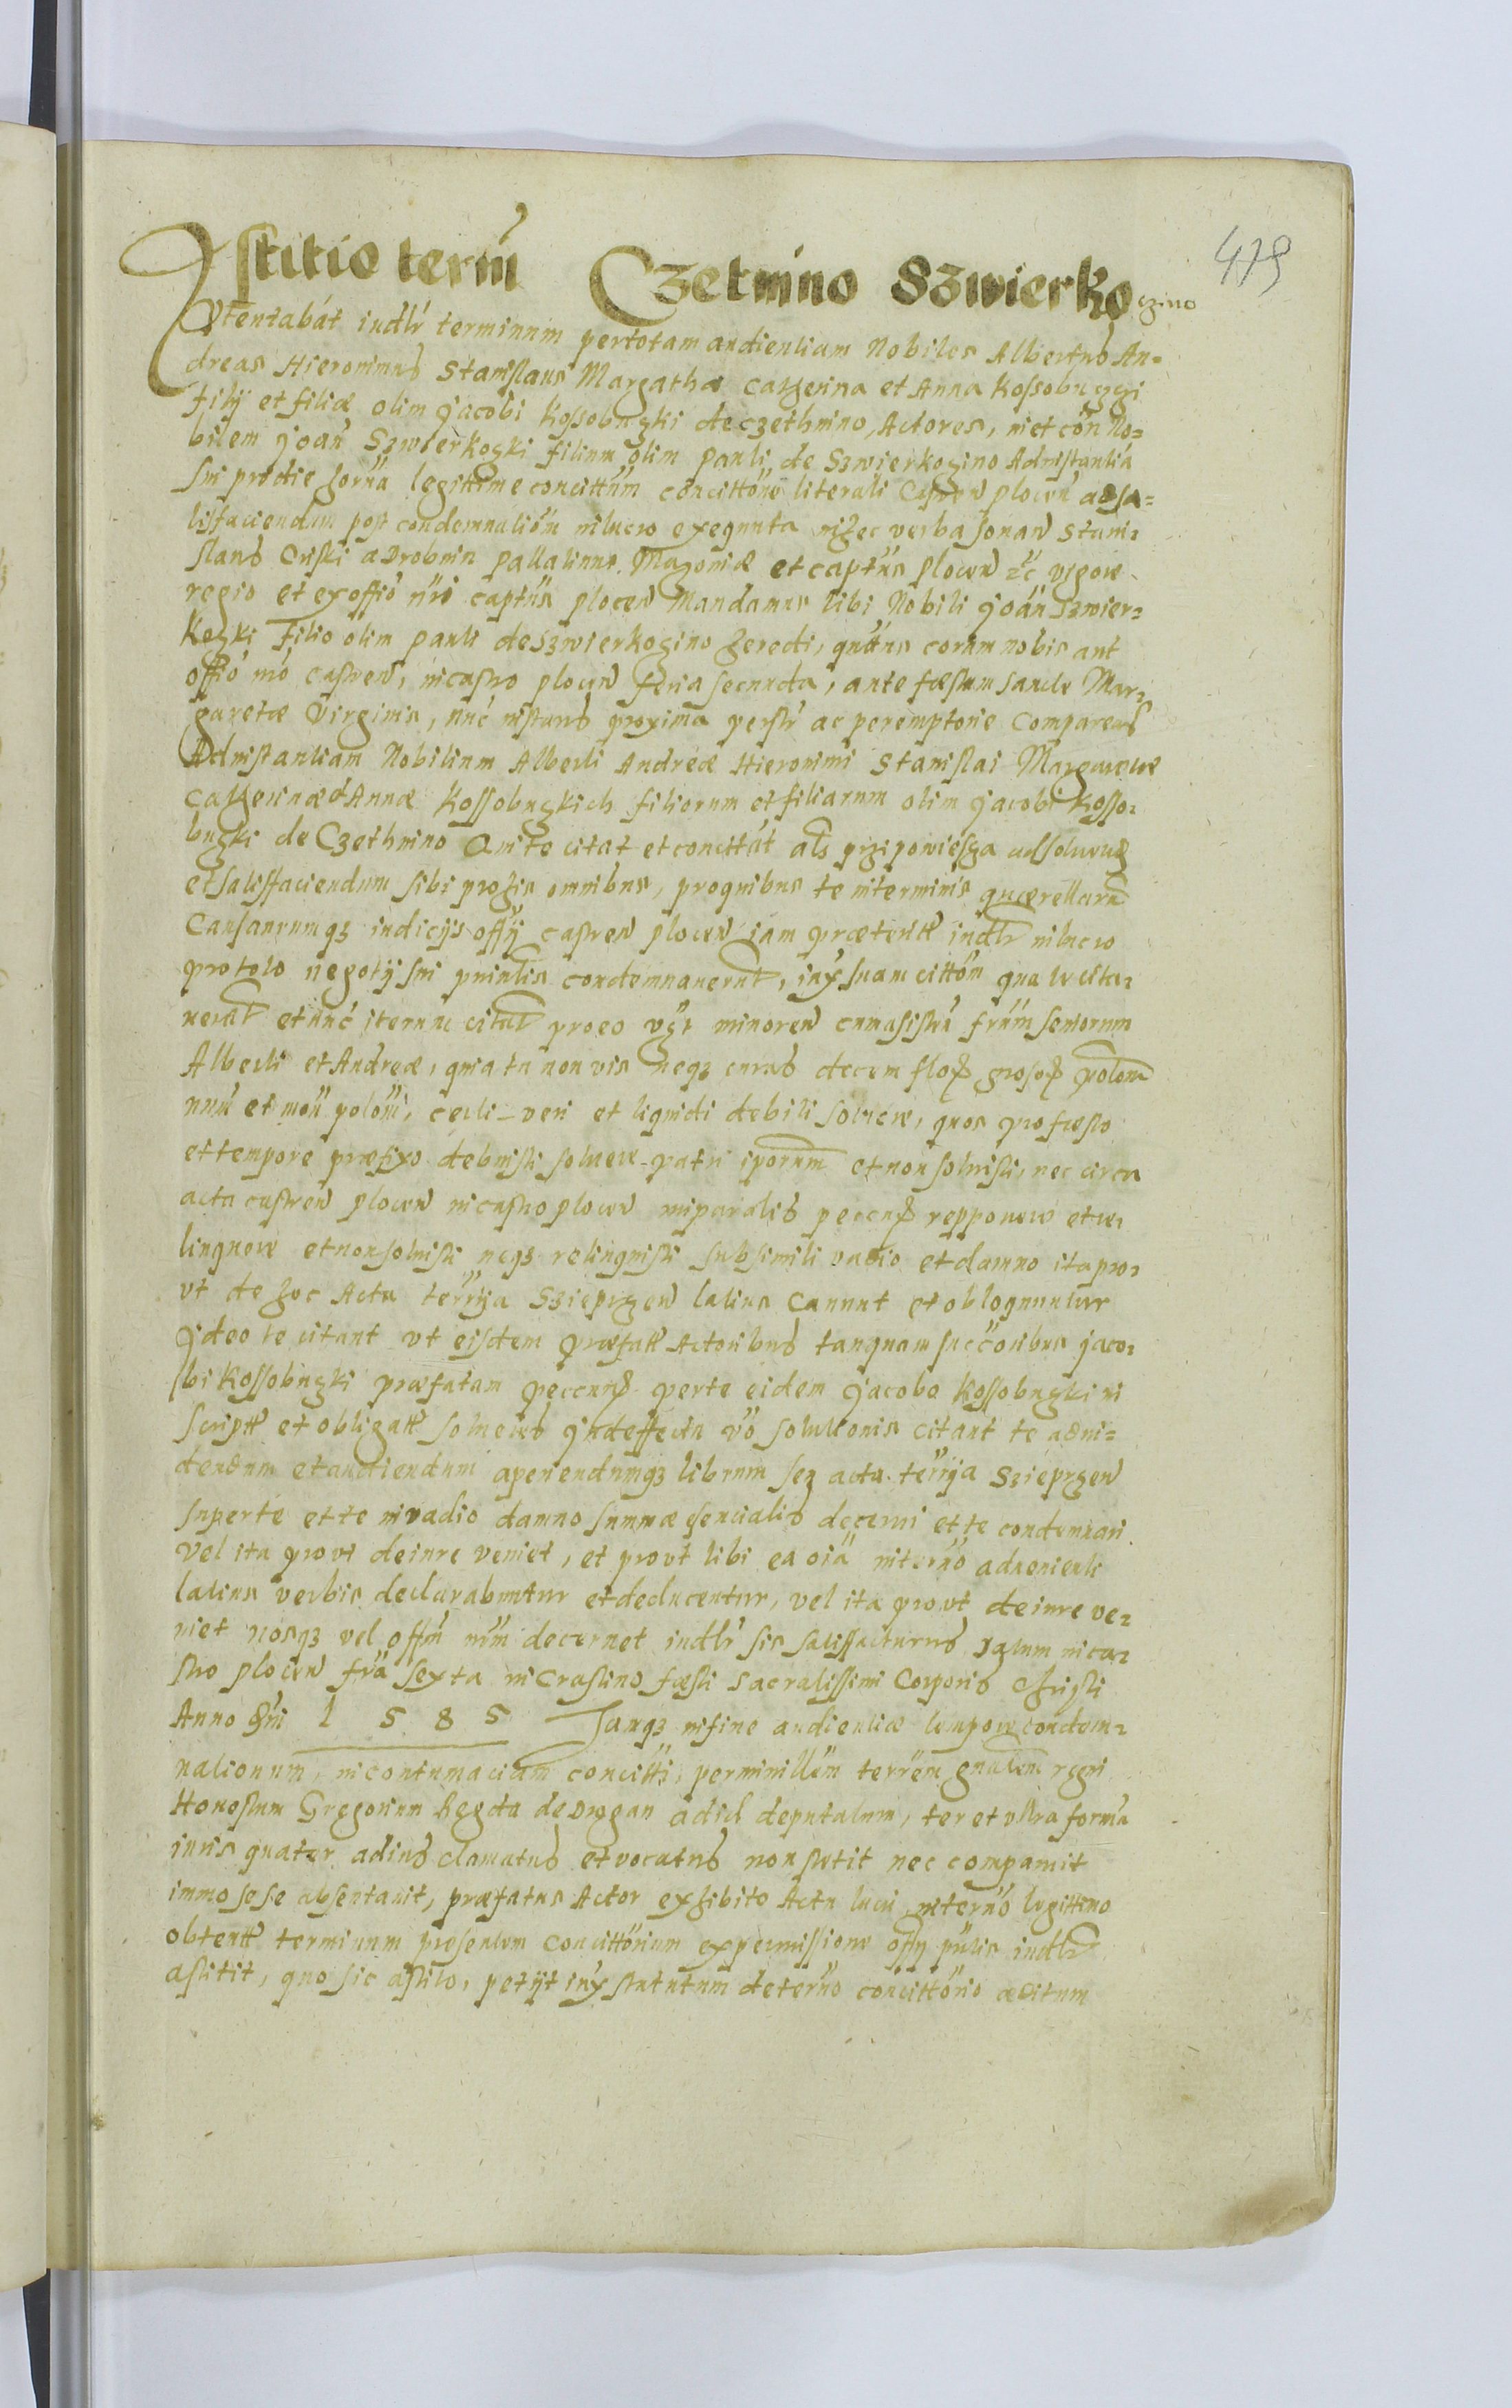 479
Astitio termi Czetmino Szwierkogzino
Attentabat iudlr terminum per totam audientiam Nobiles Albertus An=
dreas Hieronimus Stanislaus Margatha Catherina et Anna Kossobuzgi
filij et filiæ olim Jacobi Kossobuzki de Czethmino, Actores, in et con No=
bilem Joan Szwierkogki filium olim Pauli de Szwierkogino Ad instantia
sui pro die horna legittime concittum concittone literali Castren Plocen ad sa=
tisfaciendum post condemnationem in lucro exequuta in hec verba sonan Stani=
slaus Criski a Drobnin Pallatinus Mazoviæ et captus Plocen &c vigore
regio et ex offio nri captus plocen Mandamus tibi Nobili Joan Szwier=
kogki filio olim Pauli de Szwierkogino heredi, quattus coram nobis aut
offio nro castren, in castro plocen feria secunda, ante fæstum sancte Mar=
garetæ Virginis, nunc instans proxima perstr ac peremptorie compareas
Ad instantiam Nobilium Alberti Andreæ Hieronimi Stanislai Margarete
Catherinæ et Annæ Kossobuzkich filiorum et filiarum olim Jacobi Kosso=
buzki de Czethmino Qui te citat et concittat als przipowiesza ad soluend
et satisfaciendum sibi pro his omnibus, pro quibus te in terminis quærellarum
causarumqz iudicijs offij castren plocen iam præteritt iudlr in lucro
pro toto negotij sui printlis condemnauerunt, iux suam cittom qua te cita=
uerat et nunc iterum citat pro eo vgt minoren cum asistra frum seniorum
Alberti et Andreæ, quia tu non vis neqz curas decem flor grosor polon
num et mon polon, certi veri et liquidi debiti soluere, quos pro fæsto
et tempore præfixo debuisti soluere patri iporum et non soluisti, nec circa
acta castren plocen in castro plocen in paratis peccuns repponere et re=
linquere et non soluisti neqz relinquisti sub simili vadio et damno ita pro=
ut de hoc Acta terrija Szieprzen latius canunt et obloquuntur
Ideo te citant vt eisdem præfatt Actoribus tanquam succoribus Jaco=
bi Kossobuzki præfatam peccuns per te eidem Jacobo Kossobuzki in
scriptt et obligatt solueres In deffectu vo solutionis citant te ad vi=
dendum et audiendum aperiendumqz librum seu acta terrija Szieprzen
super te et te in vadio damno summæ sencialis decerni et te condemnari
Vel ita prout de iure veniet, et prout tibi ea oia in termo advenienti
latius verbis declarabuntur et deducentur, vel ita prout de iure ve=
niet nosqz vel offm nrm decernet iudlr sis satisfacturus Datum in ca=
stro plocen fria sexta in Crastino fæsti Sacratissimi Corporis Christi
Anno Dni 1585 Tanqz in fine audientiæ tempore condem=
nationum, in contumaciam concitti, per ministlem terrem gnalem regni
Honestum Gregorium Regda de Drogan ad id deputatum, ter et vltra forma
iuris quater ad ius clamatus et vocatus non stetit nec comparuit
immo sese absentavit, præfatus Actor exhibito Actu lucri in termo legittimo
obtentt terminum præsentem concittorium ex permissione offij pntis iudlr
astitit, quo sic astito, petijt iux statutum de termo concittorio æditum